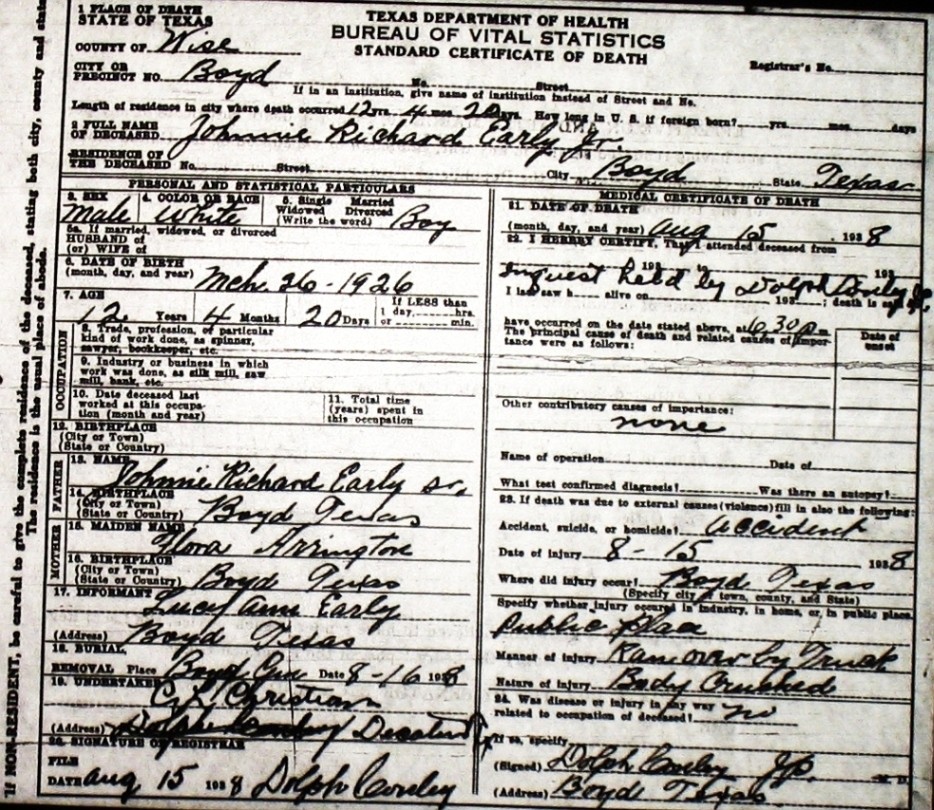 1 PLACE OF DEATH
STATE OF TEXAS
TEXAS DEPARTMENT OF HEALTH
BUREAU OF VITAL STATISTICS
STANDARD CERTIFICATE OF DEATH
COUNTY OF Wise
Registrar's No.
CITY OR
PRECINCT NO. Boyd No. Street
If in an institution, give name of institution instead of Street and No.
Length of residence in city where death occurred 12 yrs. 4 mos. 20 days. How long in U. S. if foreign born? yrs. mos. days
2 FULL NAME
OF DECEASED Johnnie Richard Early Jr.
RESIDENCE OF
THE DECEASED No. Street City Boyd State Texas
PERSONAL AND STATISTICAL PARTICULARS
3. SEX 4. COLOR OR RACE 5. Single Married
Widowed Divorced
(Write the word)
Male White Boy
5a. If married, widowed, or divorced
HUSBAND of
(or) WIFE of
6. DATE OF BIRTH
(month, day, and year) Mch. 26 - 1926
7. AGE If LESS than
12 Years 4 Months 20 Days 1 day, hrs.
or min.
OCCUPATION
8. Trade, profession, or particular
kind of work done, as spinner,
sawyer, bookkeeper, etc.
9. Industry or business in which
work was done, as silk mill, saw
mill, bank, etc.
10. Date deceased last
worked at this occupa-
tion (month and year)
11. Total time
(years) spent in
this occupation
12. BIRTHPLACE
(City or Town)
(State or Country)
FATHER
13. NAME
Johnnie Richard Early Sr.
14. BIRTHPLACE
(City or Town)
(State or Country) Boyd Texas
MOTHER
15. MAIDEN NAME
Flora Arrington
16. BIRTHPLACE
(City or Town)
(State or Country) Boyd Texas
17. INFORMANT
Lucy Ann Early
(Address) Boyd Texas
18. BURIAL,
REMOVAL Place Boyd Date 8-16 1938
19. UNDERTAKER
Christian
(Address) Decatur
20. SIGNATURE OF REGISTRAR
FILE
DATE Aug 15 1938 Dolph Conley
MEDICAL CERTIFICATE OF DEATH
21. DATE OF DEATH
(month, day, and year) Aug 15 , 1938
22. I HEREBY CERTIFY, That I attended deceased from
193 193
Inquest held by Dolph Conley J.P.
I last saw h alive on 193 ; death is said
have occurred on the date stated above, at 6.30 p m
The principal cause of death and related causes of impor-
tance were as follows:
Date of
onset
Other contributory causes of importance:
none
Name of operation Date of
What test confirmed diagnosis? Was there an autopsy?
23. If death was due to external causes (violence) fill in also the following:
Accident, suicide, or homicide? Accident
Date of injury 8 - 15 1938
Where did injury occur? Boyd Texas
(Specify city or town, county, and State)
Specify whether injury occured in industry, in home, or, in public place.
Public place
Manner of injury Ran over by Truck
Nature of injury Body Crushed
24. Was disease or injury in any way
related to occupation of deceased? no
If so, specify
(Signed) Dolph Conley J.P. M. D.
(Address) Boyd Texas
If NON-RESIDENT, be careful to give the complete residence of the deceased, stating both city, county and state.
The residence is the usual place of abode.